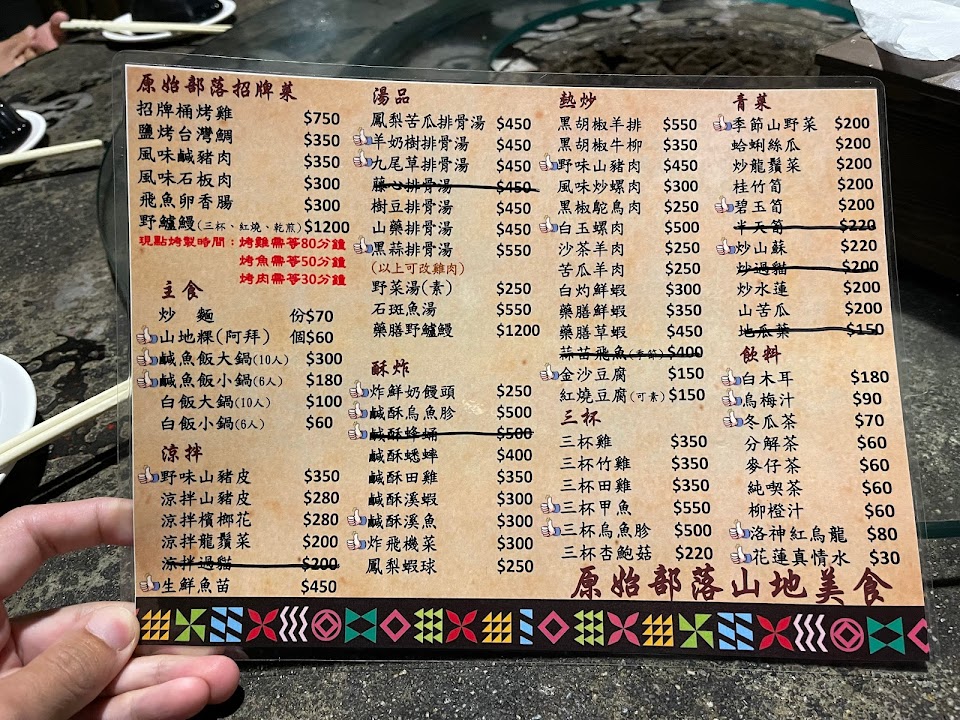 原始部落招牌菜
招牌桶烤雞 $750
鹽烤台灣鯛 $350
風味鹹豬肉 $350
風味石板肉 $300
飛魚卵香腸 $300
野鱸鰻(三杯、紅燒、乾煎) $1200
現點烤製時間：烤雞需等80分鐘
烤魚需等50分鐘
烤肉需等30分鐘
主食
炒 麵 份$70
山地粿(阿拜) 個$60
鹹魚飯大鍋(10人) $300
鹹魚飯小鍋(6人) $180
白飯大鍋(10人) $100
白飯小鍋(6人) $60
涼拌
野味山豬皮 $350
涼拌山豬皮 $280
涼拌檳榔花 $280
涼拌龍鬚菜 $200
涼拌過貓 $200
生鮮魚苗 $450
湯品
鳳梨苦瓜排骨湯 $450
羊奶樹排骨湯 $450
九尾草排骨湯 $450
藤心排骨湯 $450
樹豆排骨湯 $450
山藥排骨湯 $450
黑蒜排骨湯 $550
(以上可改雞肉)
野菜湯(素) $250
石斑魚湯 $550
藥膳野鱸鰻 $1200
酥炸
炸鮮奶饅頭 $250
鹹酥烏魚胗 $500
鹹酥蜂蛹 $500
鹹酥蟋蟀 $400
鹹酥田雞 $350
鹹酥溪蝦 $300
鹹酥溪魚 $300
炸飛機菜 $300
鳳梨蝦球 $250
熱炒
黑胡椒羊排 $550
黑胡椒牛柳 $350
野味山豬肉 $450
風味炒螺肉 $300
黑椒鴕鳥肉 $250
白玉螺肉 $500
沙茶羊肉 $250
苦瓜羊肉 $250
白灼鮮蝦 $300
藥膳鮮蝦 $350
藥膳草蝦 $450
蒜苗飛魚(季節) $400
金沙豆腐 $150
紅燒豆腐(可素) $150
三杯
三杯雞 $350
三杯竹雞 $350
三杯田雞 $350
三杯甲魚 $550
三杯烏魚胗 $500
三杯杏鮑菇 $220
青菜
季節山野菜 $200
蛤蜊絲瓜 $200
炒龍鬚菜 $200
桂竹筍 $200
碧玉筍 $200
半天筍 $220
炒山蘇 $220
炒過貓 $200
炒水蓮 $200
山苦瓜 $200
地瓜葉 $150
飲料
白木耳 $180
烏梅汁 $90
冬瓜茶 $70
分解茶 $60
麥仔茶 $60
純喫茶 $60
柳橙汁 $60
洛神紅烏龍 $80
花蓮真情水 $30
原始部落山地美食